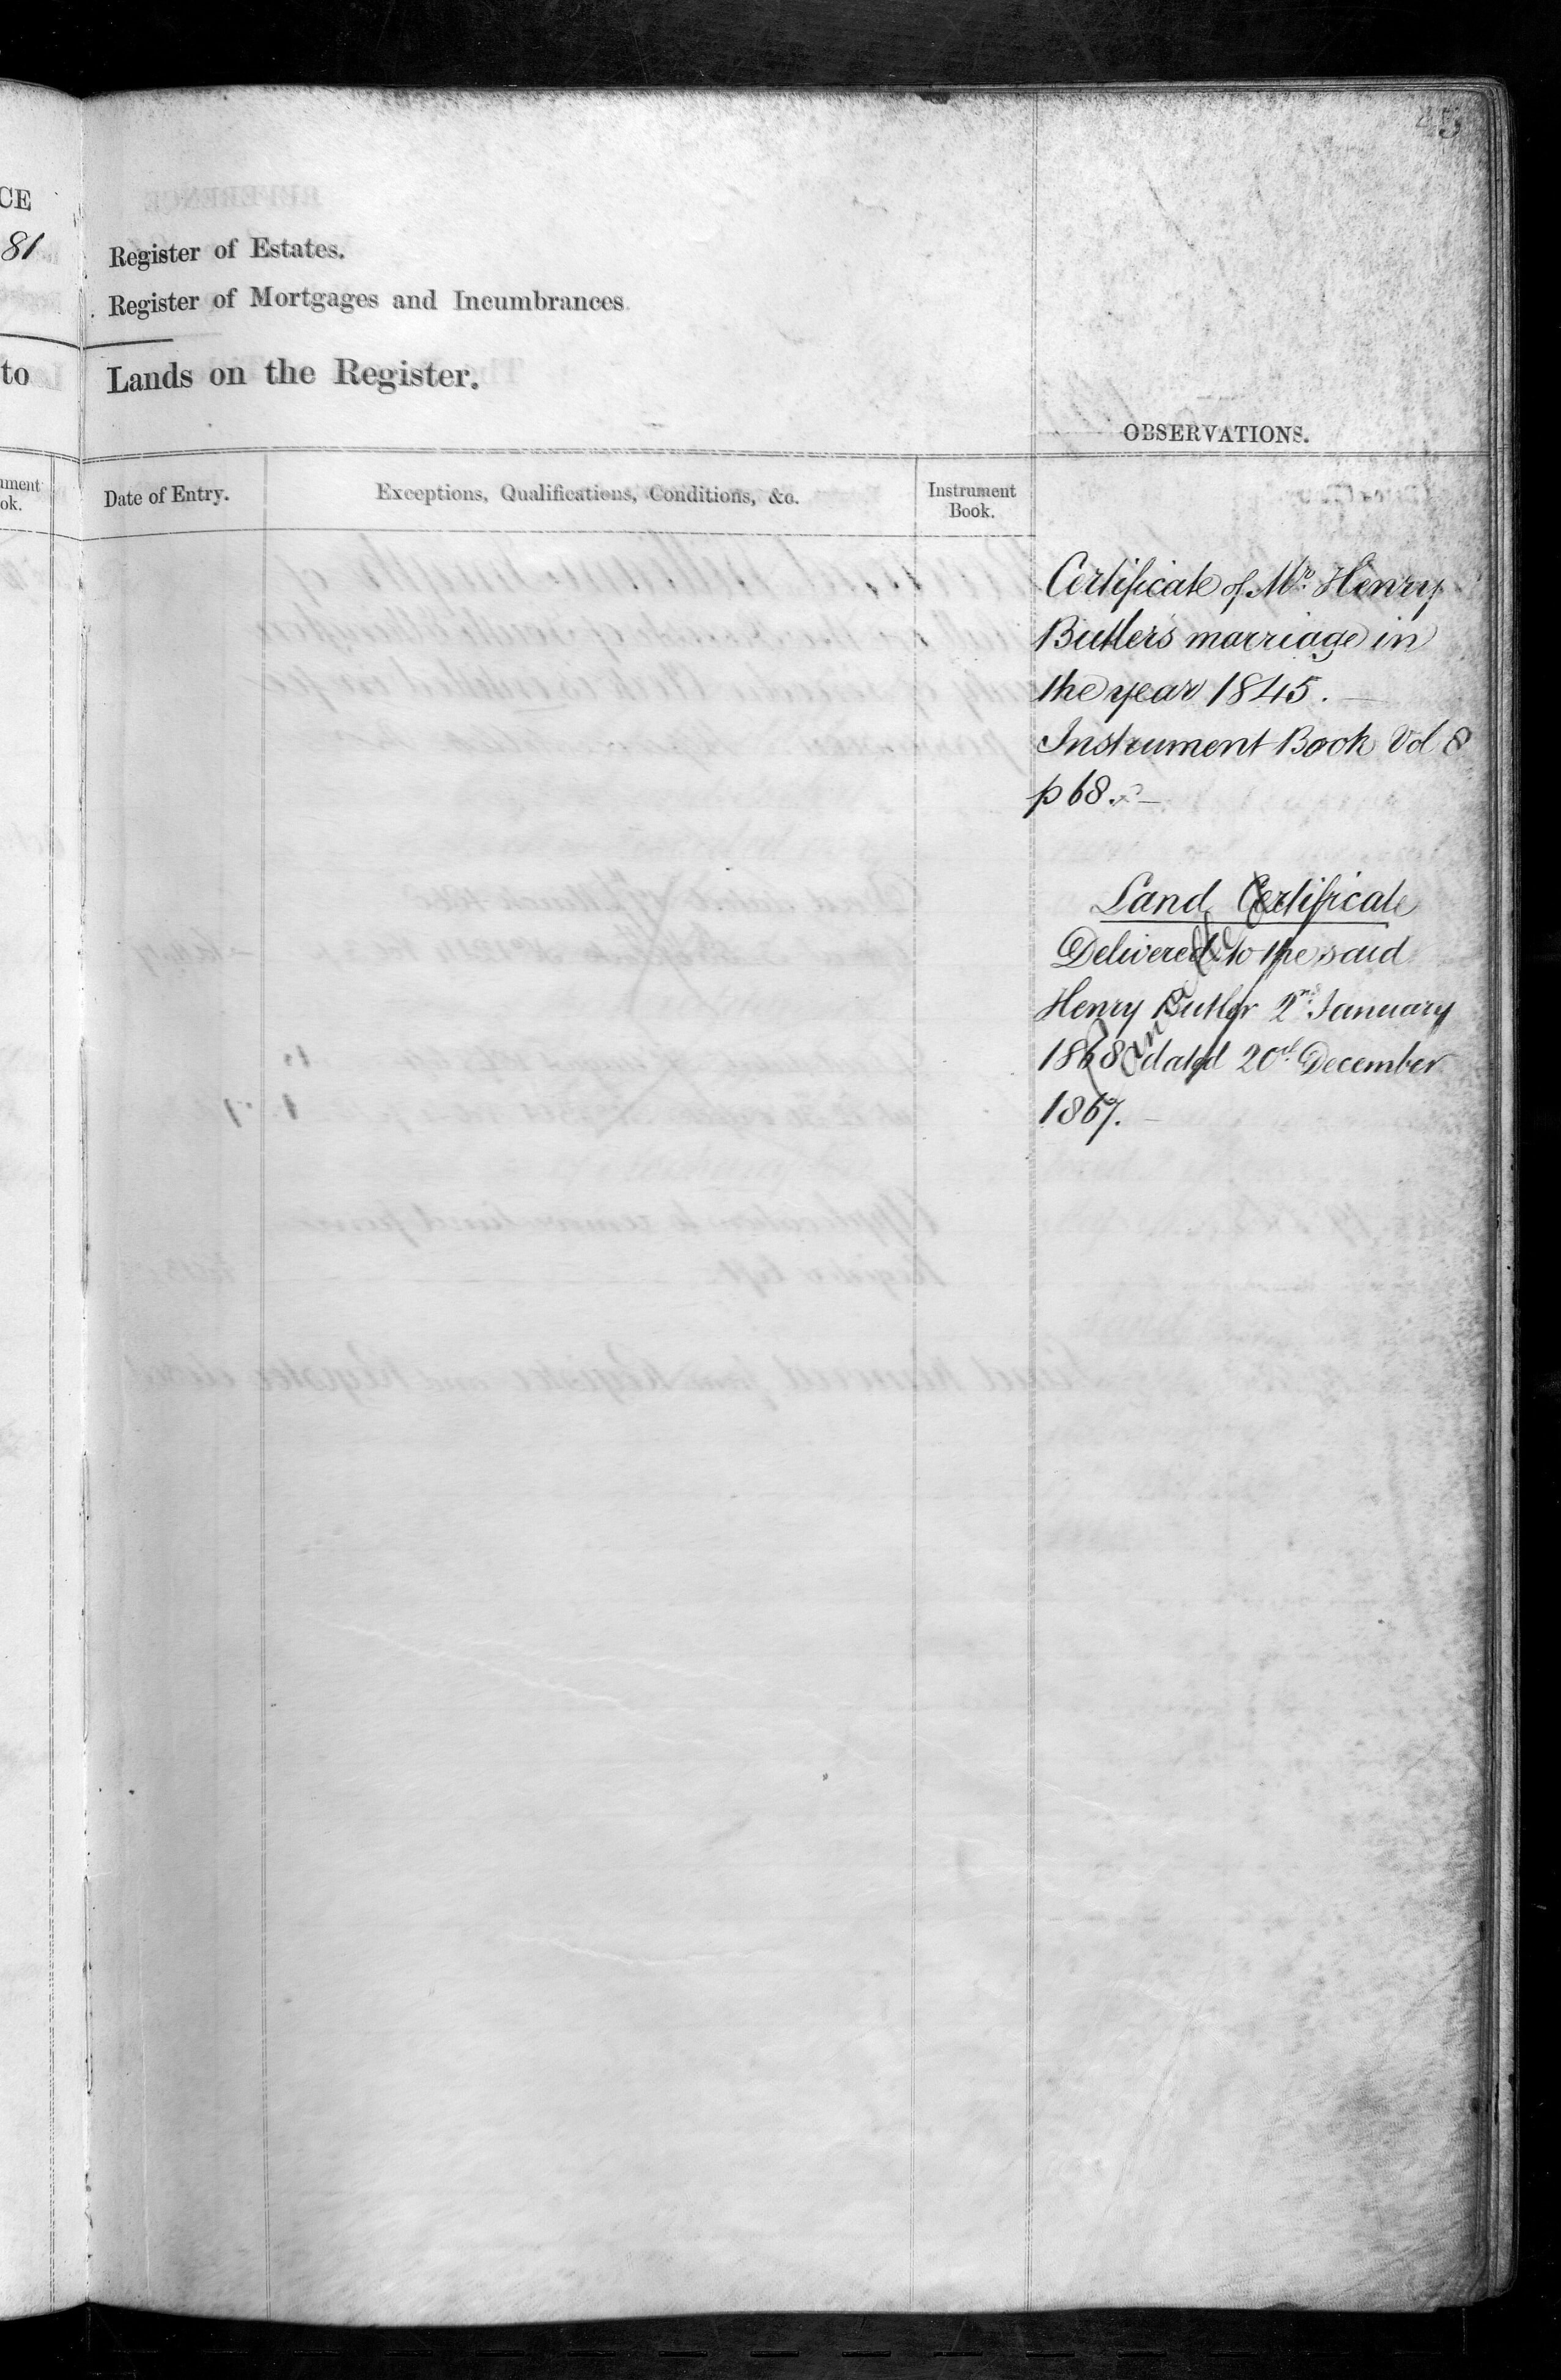 45
CE
81
Register of Estates.
Register of Mortgages and Incumbrances.
to
Lands on the Register.
OBSERVATIONS.
ument
ok.
Date of Entry.
Exceptions, Qualifications, Conditions, &c.
Instrument
Book.
Certificate of Mr. Henry
Butlers marriage in
the year 1845.
Instrument Book Vol 8
p 68.
Land Certificate
Delivered to the said
Henry Butler 2nd January
1868 dated 20th December
1867.
Cancelled